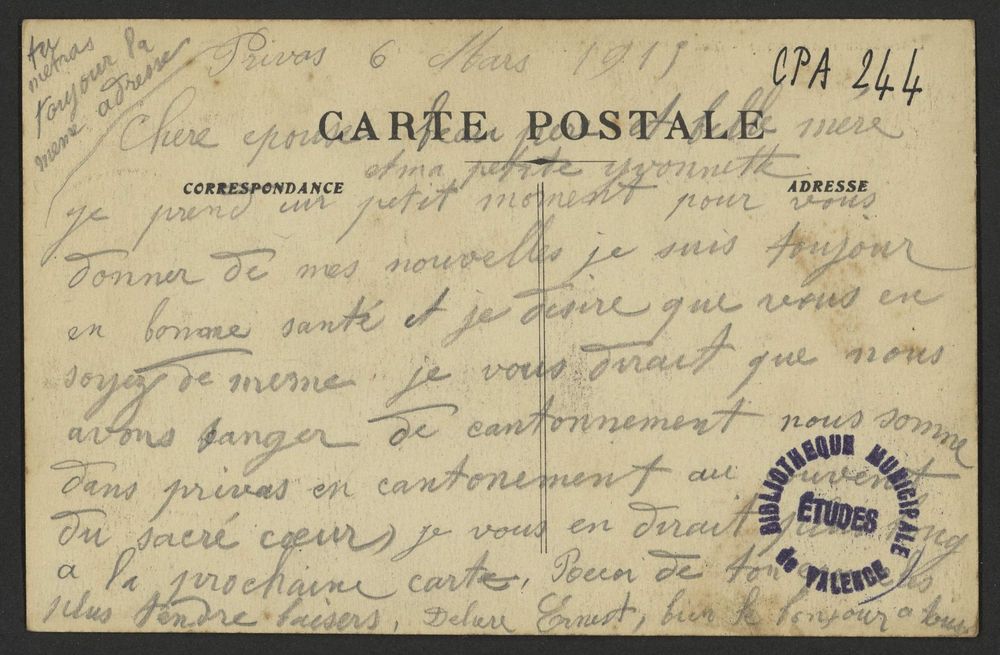 tu
metras
toujour la
meme adresse
Privas 6 Mars 1915
CPA 244
CARTE POSTALE
Chere epouse beau pere et belle mere
et ma petite yvonnett
CORRESPONDANCE
ADRESSE
je prend un petit moment pour vous
donner de mes nouvelles je suis toujour
en bonne santé et je desire que vous en
soyez de meme je vous dirait que nous
avons sanger de cantonnement nous somme
dans privas en cantonement au couvent
du sacré cœur) je vous en dirait plus long
a la prochaine carte, de ton les
plus tendre baisers, Ernest, bien le bonjour a tous
BIBLIOTHEQUE MUNICIPALE
ÉTUDES
de VALENCE